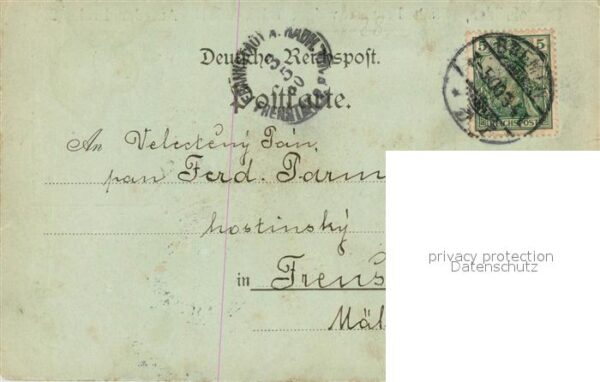 Deutsche Reichspost.
Postkarte.
5 5
REICHSPOST
An Velectěný Pán,
pan Ferd. Parm
hostinský
in Frens
Mäh
privacy protection
Datenschutz